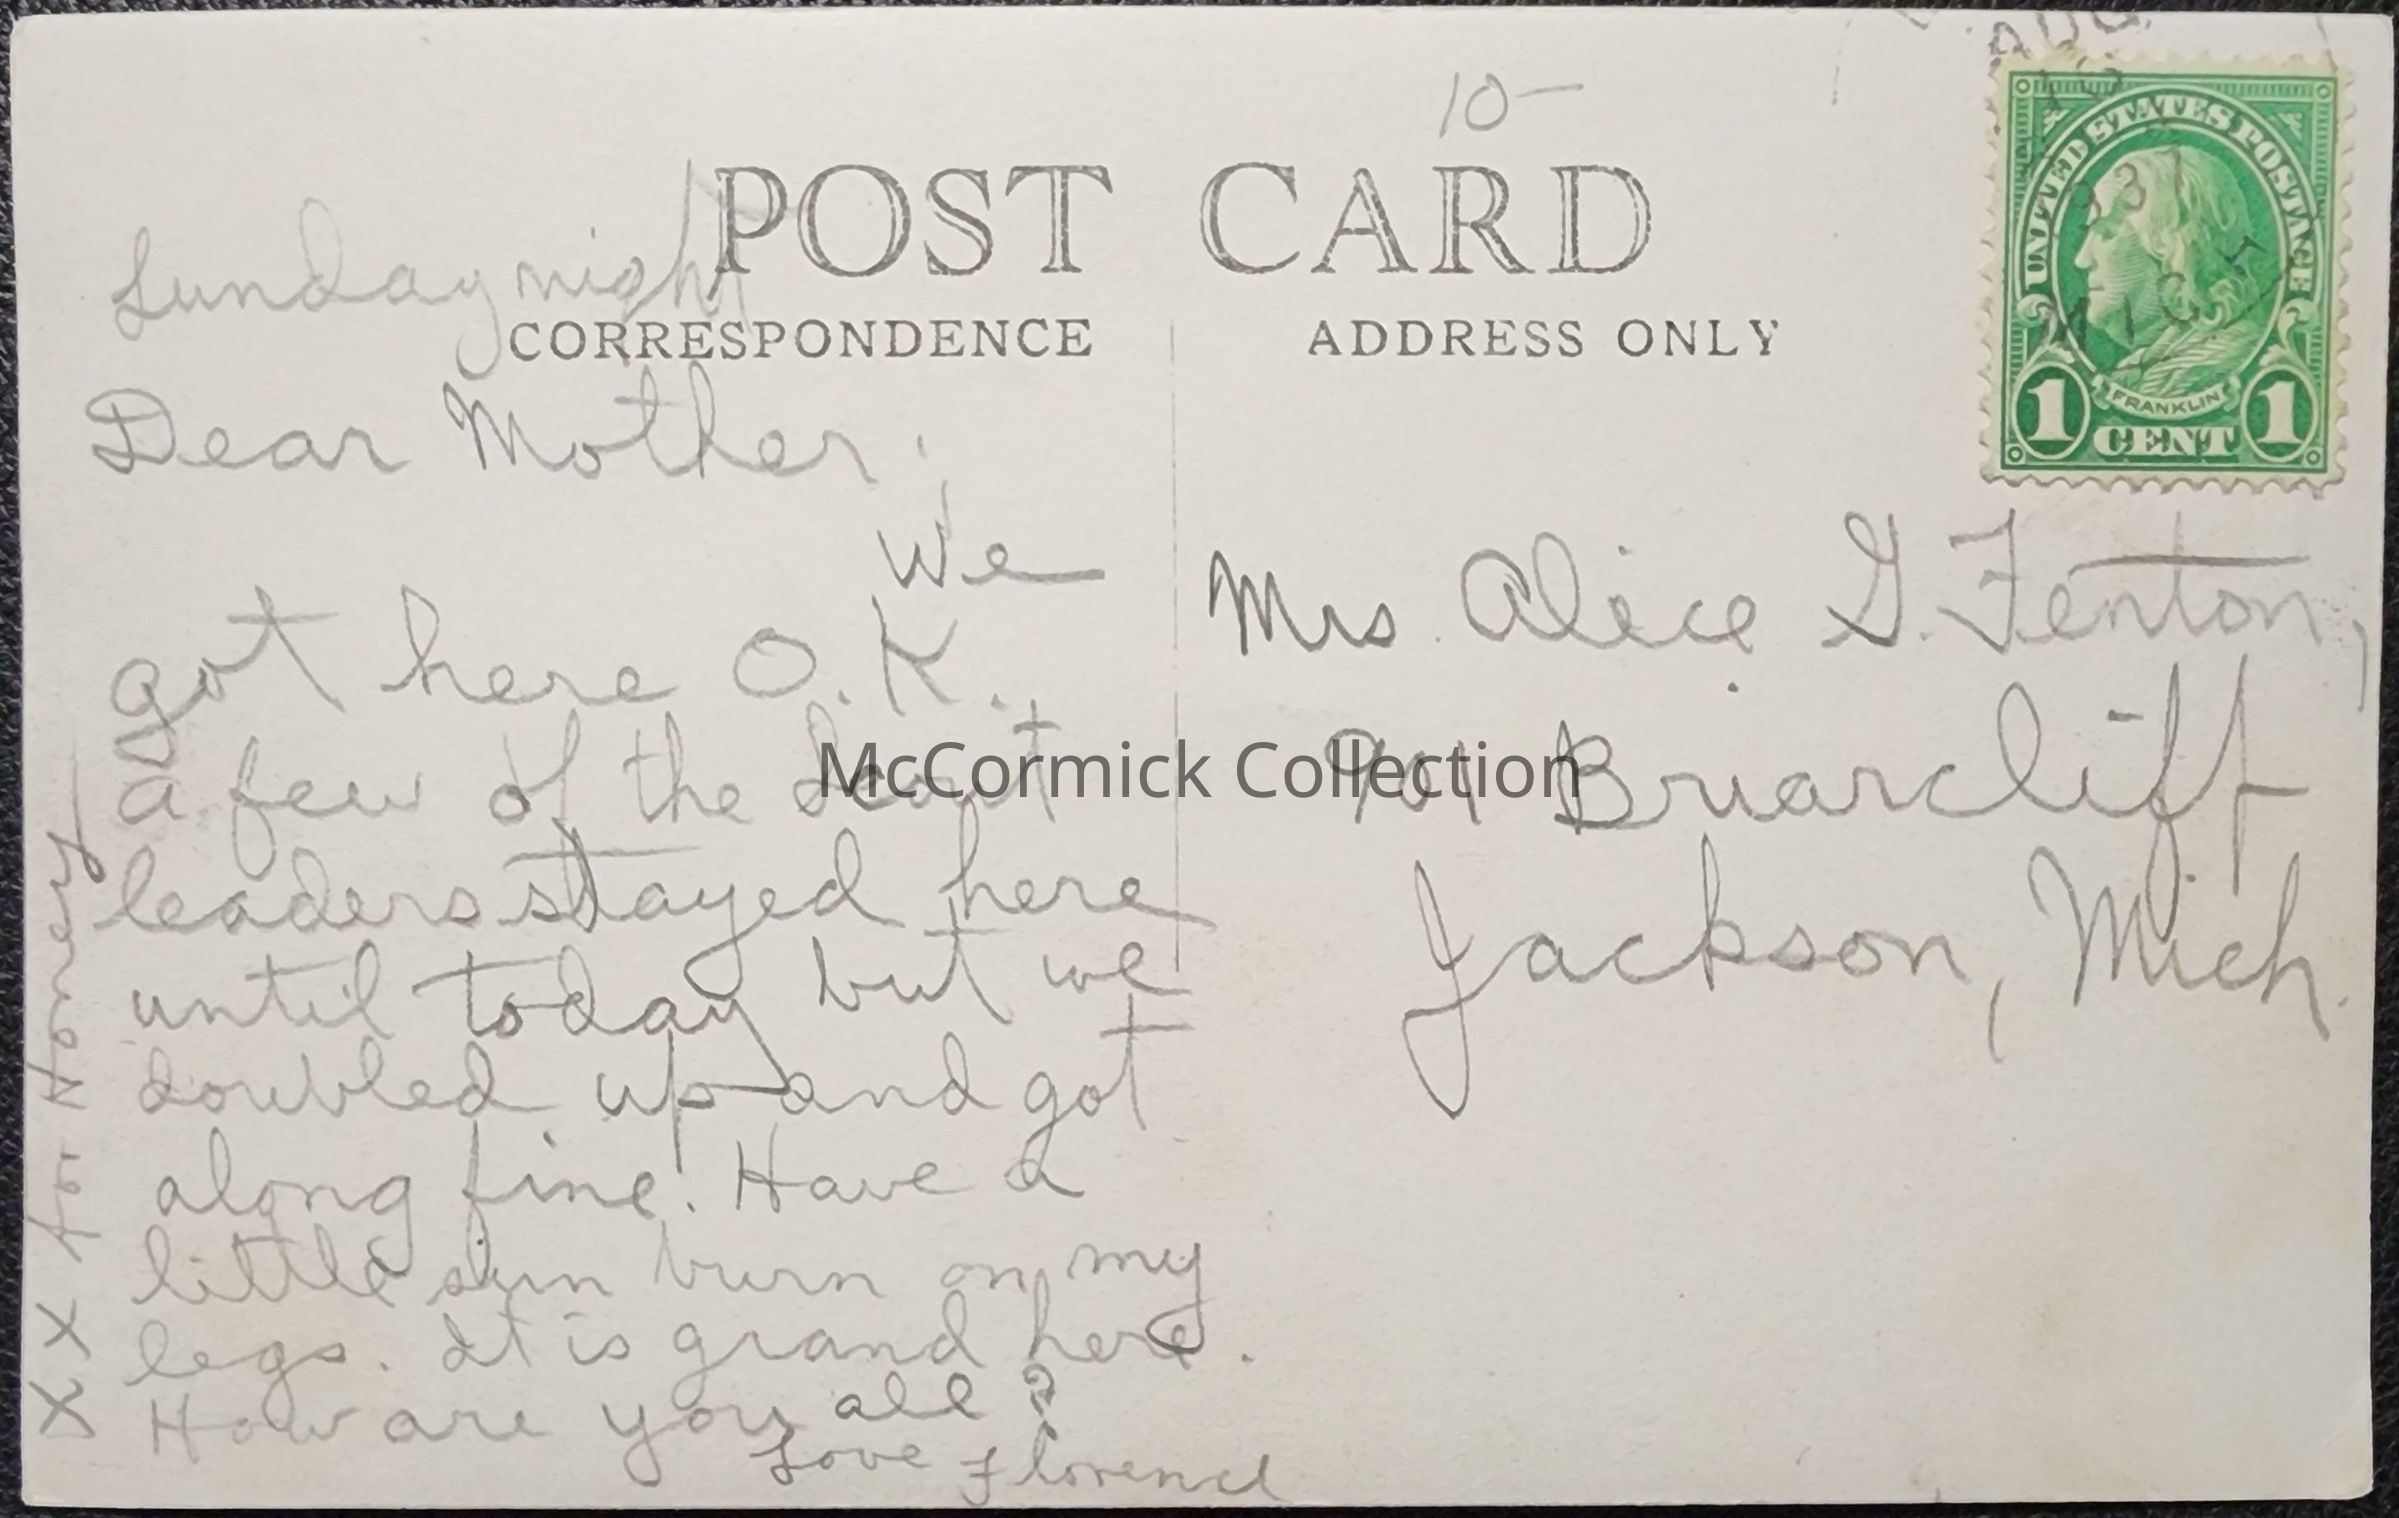 10-
POST CARD
CORRESPONDENCE
ADDRESS ONLY
AUG
1931
MICH
UNITED STATES POSTAGE
FRANKLIN
1 CENT 1
Sunday night
Dear Mother;
We
got here O.K.
a few of the Scout
leaders stayed here
until today but we
doubled up and got
along fine. Have a
little sun burn on my
legs. It is grand here.
How are you all?
Love Florence
X X for Honey
Mrs. Alice G. Fenton,
901 Briarcliff
Jackson, Mich.
McCormick Collection